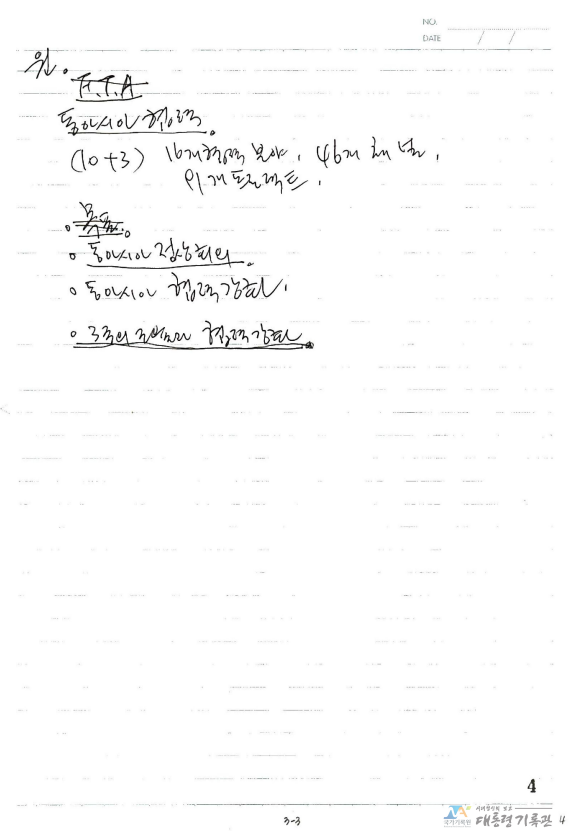 NO.
DATE / /
원.
F.T.A
동아시아 협력.
(10+3) 16개 협력 분야, 46개 채널,
91개 프로젝트,
o 북핵.
o 동아시아 정상회의.
o 동아시아 협력강화.
o 3국의 협력강화.
4
3-3
국가기록원 대통령기록관 4